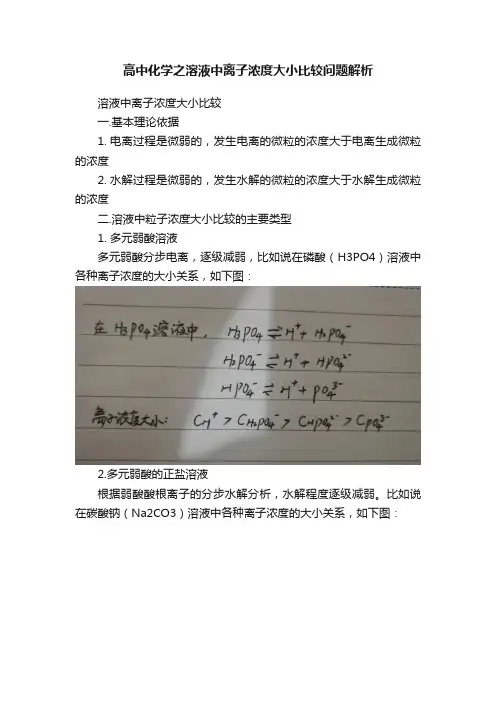 高中化学之溶液中离子浓度大小比较问题解析
溶液中离子浓度大小比较
一.基本理论依据
1. 电离过程是微弱的，发生电离的微粒的浓度大于电离生成微粒
的浓度
2. 水解过程是微弱的，发生水解的微粒的浓度大于水解生成微粒
的浓度
二.溶液中粒子浓度大小比较的主要类型
1. 多元弱酸溶液
多元弱酸分步电离，逐级减弱，比如说在磷酸（H3PO4）溶液中
各种离子浓度的大小关系，如下图：
在 H₃PO₄ 溶液中， H₃PO₄ ⇌ H⁺ + H₂PO₄⁻
H₂PO₄⁻ ⇌ H⁺ + HPO₄²⁻
HPO₄⁻ ⇌ H⁺ + PO₄³⁻
离子浓度大小： CH⁺ > CH₂PO₄⁻ > CHPO₄²⁻ > CPO₄³⁻
2.多元弱酸的正盐溶液
根据弱酸酸根离子的分步水解分析，水解程度逐级减弱。比如说
在碳酸钠（Na2CO3）溶液中各种离子浓度的大小关系，如下图：